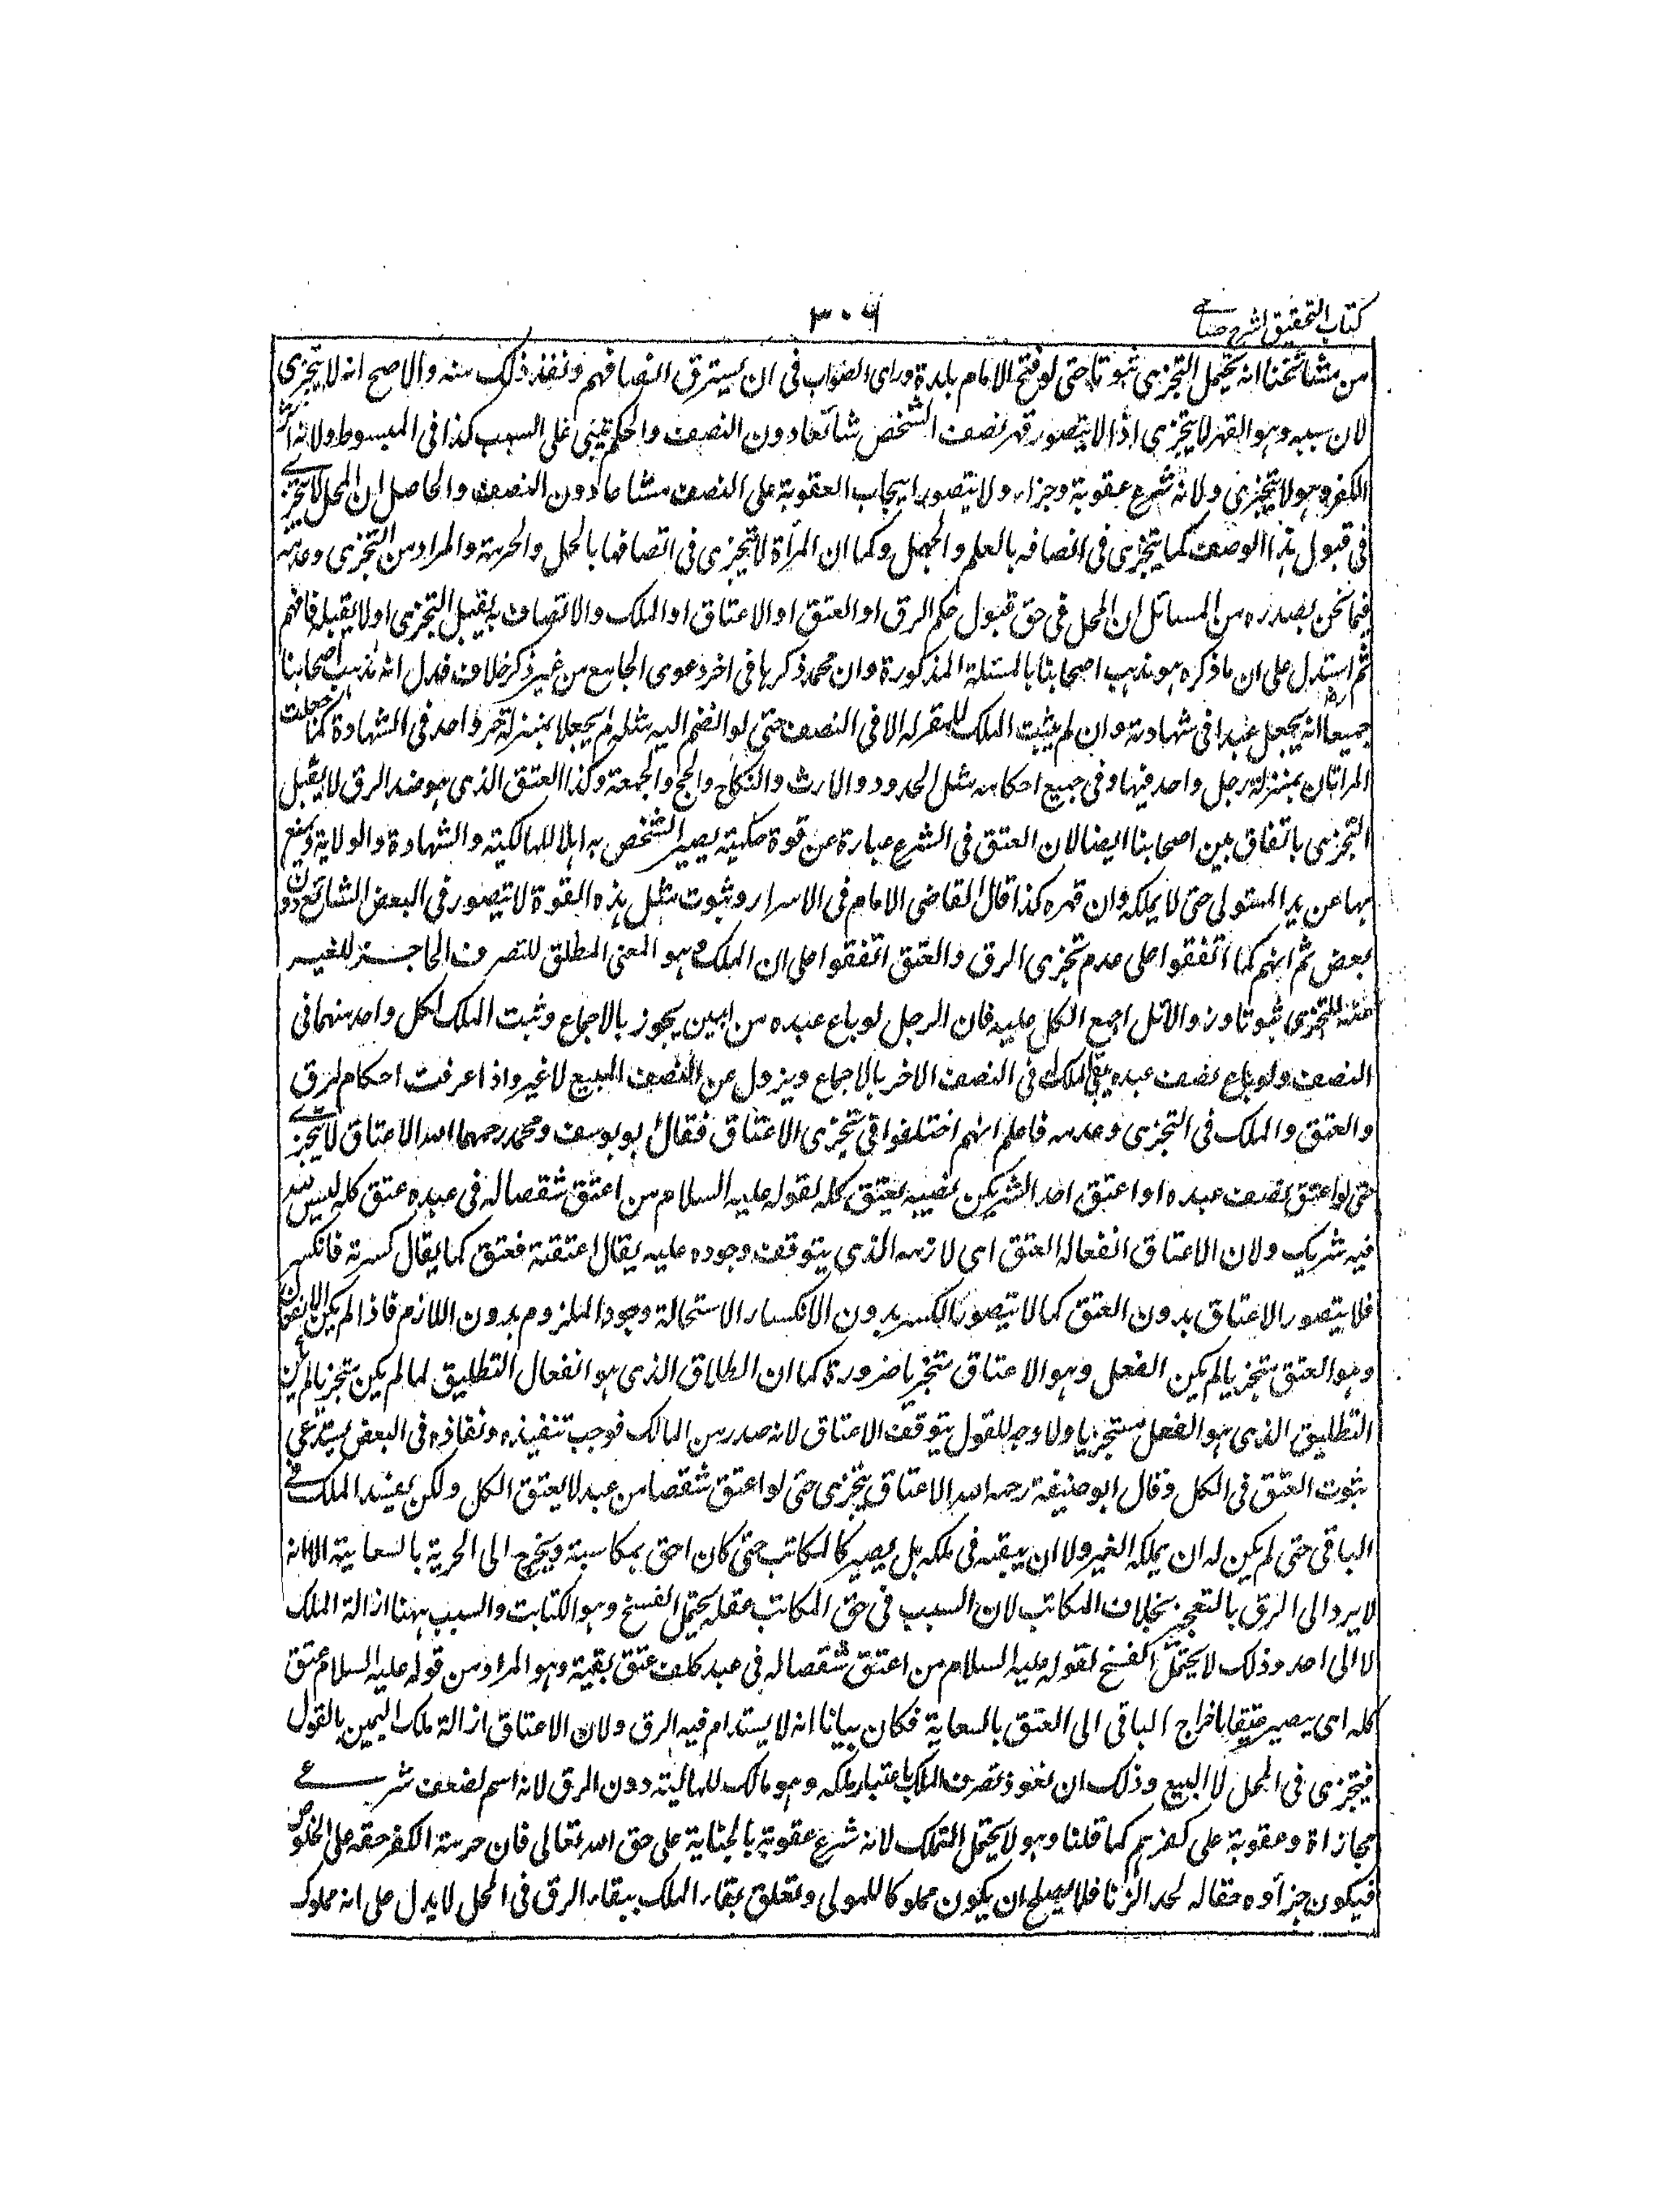 كتاب التحقيق شرح حسامى
٣٠٩
من مشائخنا انه يحتمل التجزى ثبوتا حتى لو فتح الامام بلدة وراى الصواب فى ان يسترق انصافهم ونفذ ذلك منه والاصح انه لا يتجزى
لان سببه وهو القهر لا يتجزى اذ لا يتصور قهر نصف الشخص شائعا دون النصف والحكم يبتنى على السبب كذا فى المبسوط ولانه اثر
الكفر وهو لا يتجزى ولانه شرع عقوبة وجزاء ولا يتصور ايجاب العقوبة على النصف مشاعا دون النصف والحاصل ان المحل لا يتجزى
فى قبول هذا الوصف كما يتجزى فى اتصافه بالعلم والجهل وكما ان المرأة لا تتجزى فى اتصافها بالحل والحرمة والمراد من التجزى وعدمه
فيما نحن بصدده من المسائل ان المحل فى حق قبول حكم الرق او العتق او الاعتاق او الملك والاتصاف به يقبل التجزى او لا يقبله فافهم
ثم استدل على ان ما ذكره هو مذهب اصحابنا بالمسئلة المذكورة وان محمد ذكرها فى اخر دعوى الجامع من غير ذكر خلاف فدل انه مذهب اصحابنا
جميعا انه يجعل عبدا فى شهادته وان لم يثبت الملك للمقر له الا فى النصف حتى لو انضم اليه مثله لم يجعلا بمنزلة حر واحد فى الشهادة كما جعلت
المراتان بمنزلة رجل واحد فيها وفى جميع احكامه مثل الحدود والارث والنكاح والحج والجمعة وكذا العتق الذى هو ضد الرق لا يقبل
التجزى باتفاق بين اصحابنا ايضا لان العتق فى الشرع عبارة عن قوة حكمية يصير الشخص به اهلا للمالكية والشهادة والولاية ويدفع
بها عن يد المستولى حتى لا يملكه وان قهره كذا قال القاضى الامام فى الاسرار وثبوت مثل هذه القوة لا يتصور فى البعض الشائع دون
بعض ثم انهم كما اتفقوا على عدم تجزى الرق والعتق اتفقوا على ان الملك وهو المعنى المطلق للتصرف الحاجز للغير
عنه للتجزى ثبوتا وزوالا لكل اجمع الكل عليه فان الرجل لو باع عبده من اثنين يجوز بالاجماع وثبت الملك لكل واحد منهما فى
النصف ولو باع نصف عبده يبقى الملك فى النصف الاخر بالاجماع ويزول عن النصف المبيع لا غير واذا عرفت احكام الرق
والعتق والملك فى التجزى وعدمه فاعلم انهم اختلفوا فى تجزى الاعتاق فقال ابو يوسف ومحمد رحمهما الله الاعتاق لا يتجزى
حتى لو اعتق نصف عبده او اعتق احد الشريكين نصيبه يعتق كله لقوله عليه السلام من اعتق شقصا له فى عبده عتق كله ليس لله
فيه شريك ولان الاعتاق انفعاله العتق اى لازمه الذى يتوقف وجوده عليه يقال اعتقته فعتق كما يقال كسرته فانكسر
فلا يتصور الاعتاق بدون العتق كما لا يتصور الكسر بدون الانكسار لاستحالة وجود الملزوم بدون اللازم فاذا لم يكن الانفعال
وهو العتق متجزيا لم يكن الفعل وهو الاعتاق متجزيا ضرورة كما ان الطلاق الذى هو انفعال التطليق لما لم يكن متجزيا لم يكن
التطليق الذى هو الفعل متجزيا ولا وجه للقول بتوقف الاعتاق لانه صدر من المالك فوجب تنفيذه ونفاذه فى البعض يستدعى
ثبوت العتق فى الكل وقال ابو حنيفة رحمه الله الاعتاق يتجزى حتى لو اعتق شقصا من عبد لا يعتق الكل ولكن يفسد الملك فى
الباقى حتى لم يكن له ان يملكه الغير ولا ان يبقيه فى ملكه بل يصير كالمكاتب حتى كان احق بمكاسبة ويخرج الى الحرية بالسعاية الا انه
لا يرد الى الرق بالتعجيز بخلاف المكاتب لان السبب فى حق المكاتب عقد يحتمل الفسخ وهو الكتابت والسبب ههنا ازالة الملك
لا الى احد وذلك لا يحتمل الفسخ لقوله عليه السلام من اعتق شقصا له فى عبد كلف عتق بقيته وهو المراد من قوله عليه السلام عتق
كله اى يصير عتيقا باخراج الباقى الى العتق بالسعاية فكان بيانا انه لا يستدام فيه الرق ولان الاعتاق ازالة ملك اليمين بالقول
فيتجزى فى المحل لا البيع وذلك ان نفوذ تصرف الملك باعتبار ملكه وهو مالك للمالية دون الرق لانه اسم لضعف شرعى
مجازاة وعقوبة على كفرهم كما قلنا وهو لا يحتمل التملك لانه شرع عقوبة بالجناية على حق الله تعالى فان حرمة الكفر حقه على الخلوص
فيكون جزاؤه حقا له كحد الزنا فلا يصلح ان يكون مملوكا للمولى وتعلق بقاء الملك ببقاء الرق فى المحل لا يدل على انه مملوك